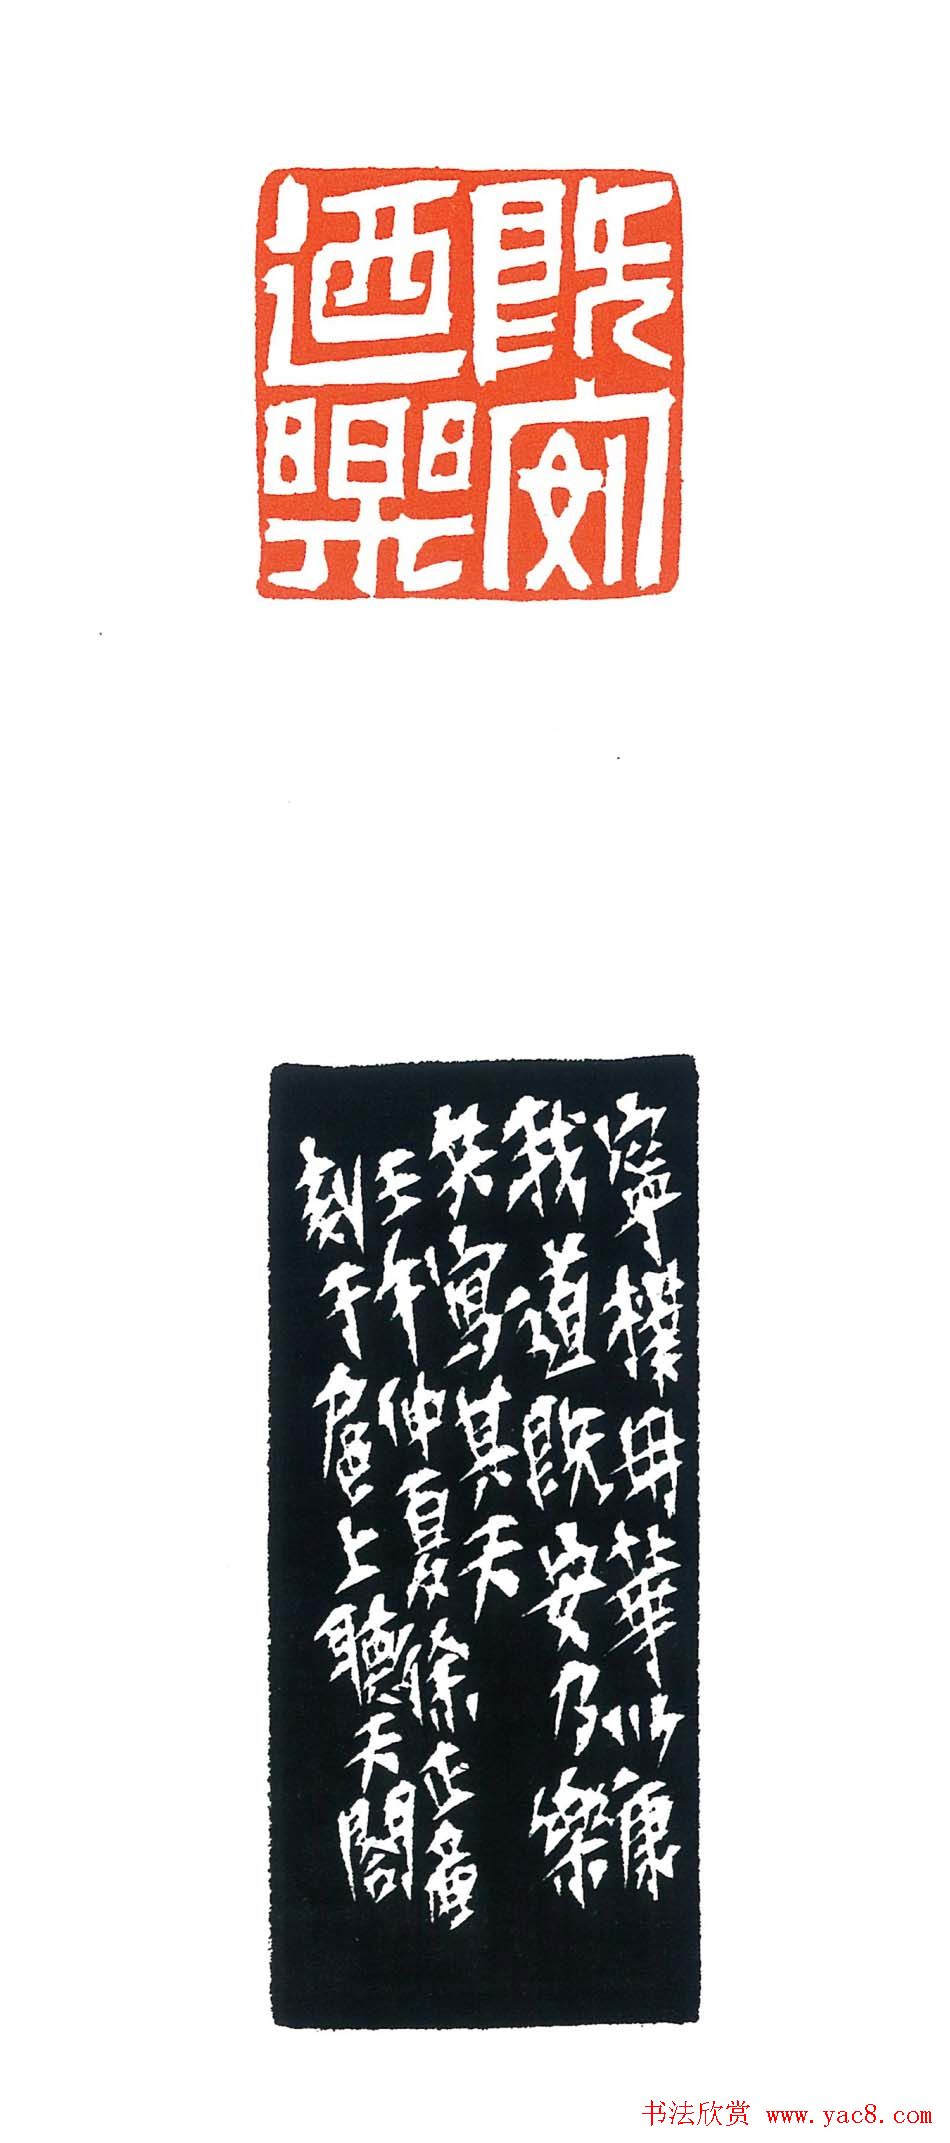 既安
迺樂
寧樸毋華以康
我道既安乃樂
矣寫其天
壬午仲夏徐正廉
刻于扈上聽天閣
书法欣赏 www.yac8.com